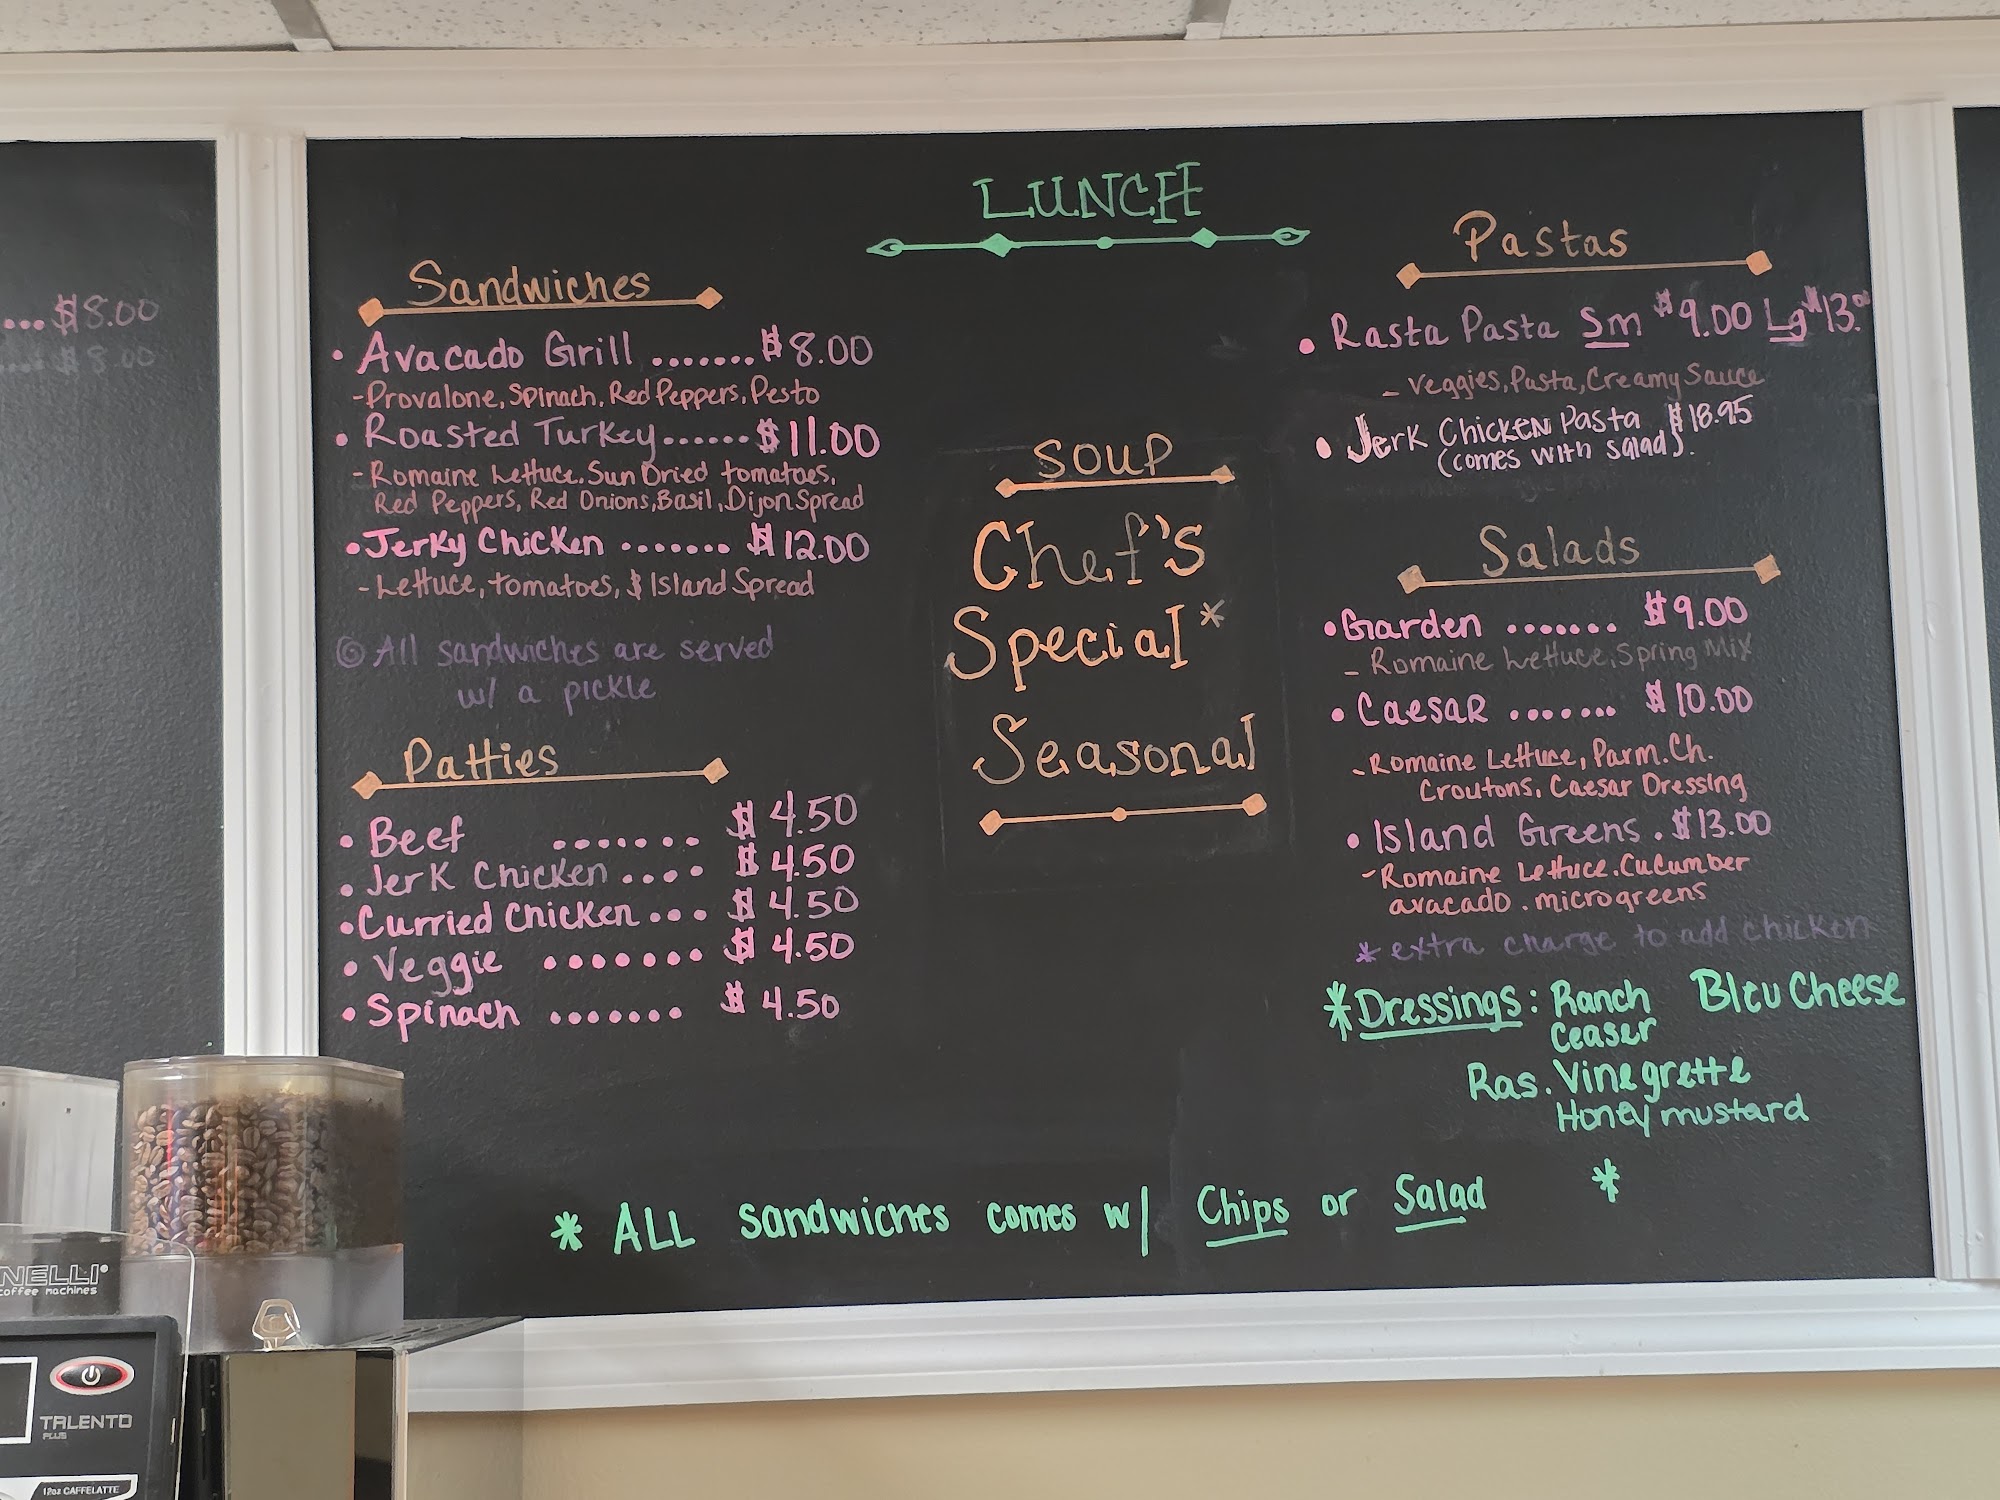 ... $8.00
... $8.00
LUNCH
Sandwiches
• Avacado Grill ....... $8.00
- Provalone, Spinach, Red Peppers, Pesto
• Roasted Turkey...... $11.00
- Romaine Lettuce. Sun Dried tomatoes,
Red Peppers, Red Onions, Basil, Dijon Spread
• Jerky Chicken ....... $12.00
- Lettuce, tomatoes, $ Island Spread
All sandwiches are served
w/ a pickle
Patties
• Beef ....... $4.50
• Jerk Chicken .... $4.50
• Curried Chicken ... $4.50
• Veggie ....... $4.50
• Spinach ....... $4.50
SOUP
Chef's
Special*
Seasonal
Pastas
• Rasta Pasta Sm $9.00 Lg $13.00
- Veggies, Pasta, Creamy Sauce
• Jerk Chicken Pasta $18.95
(comes with salad).
Salads
• Garden ....... $9.00
- Romaine Lettuce, Spring Mix
• Caesar ....... $10.00
- Romaine Lettuce, Parm. Ch.
Croutons, Caesar Dressing
• Island Greens . $13.00
- Romaine Lettuce. Cucumber
avacado . microgreens
* extra charge to add chicken
* Dressings: Ranch Bleu Cheese
Ceaser
Ras. Vinegrette
Honey mustard
* ALL sandwiches comes w/ Chips or Salad *
NELLI
coffee machines
TALENTO
PLUS
12oz CAFFELATTE